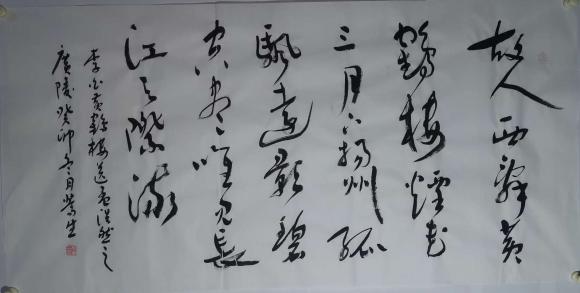 故人西辭黃
鶴樓煙花
三月下揚州孤
帆遠影碧
空盡唯見長
江天際流
李白黃鶴樓送孟浩然之
廣陵癸卯冬月生